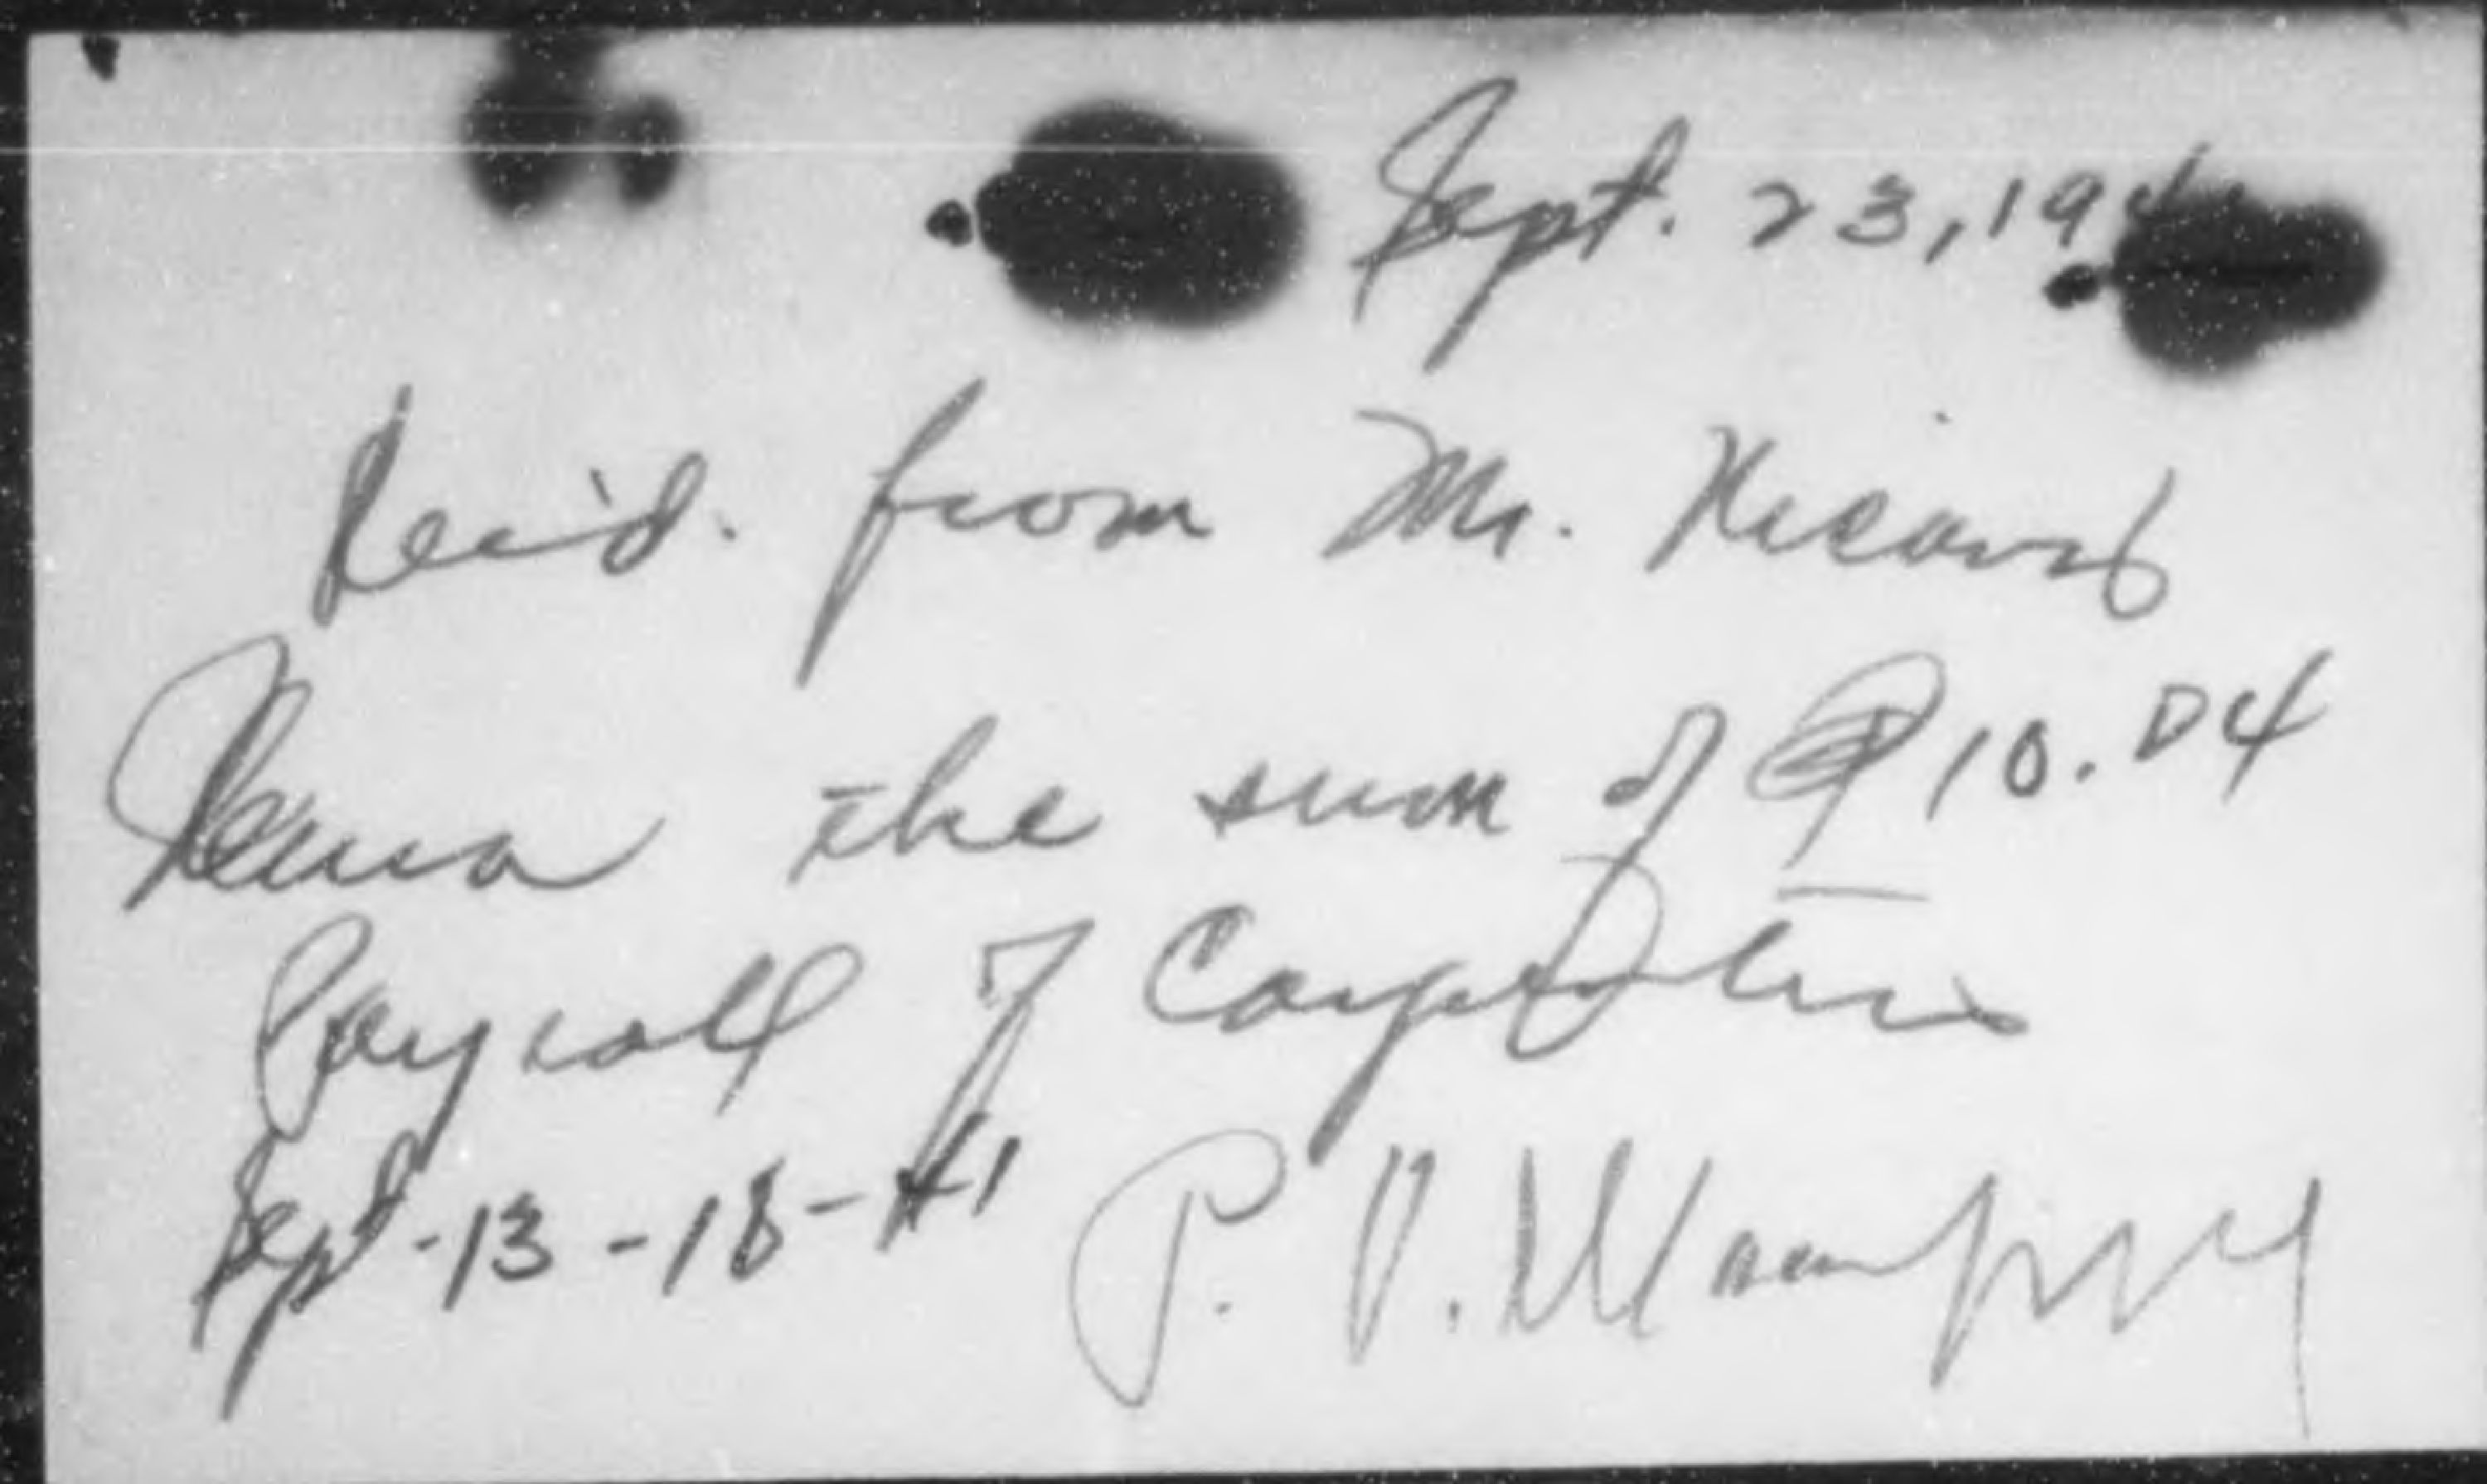 Sept. 23, 194
Rec'd. from Mr. Nicanor
the sum of ₱10.04
Payroll of Carpenters
Sept-13-18-41
P. V.